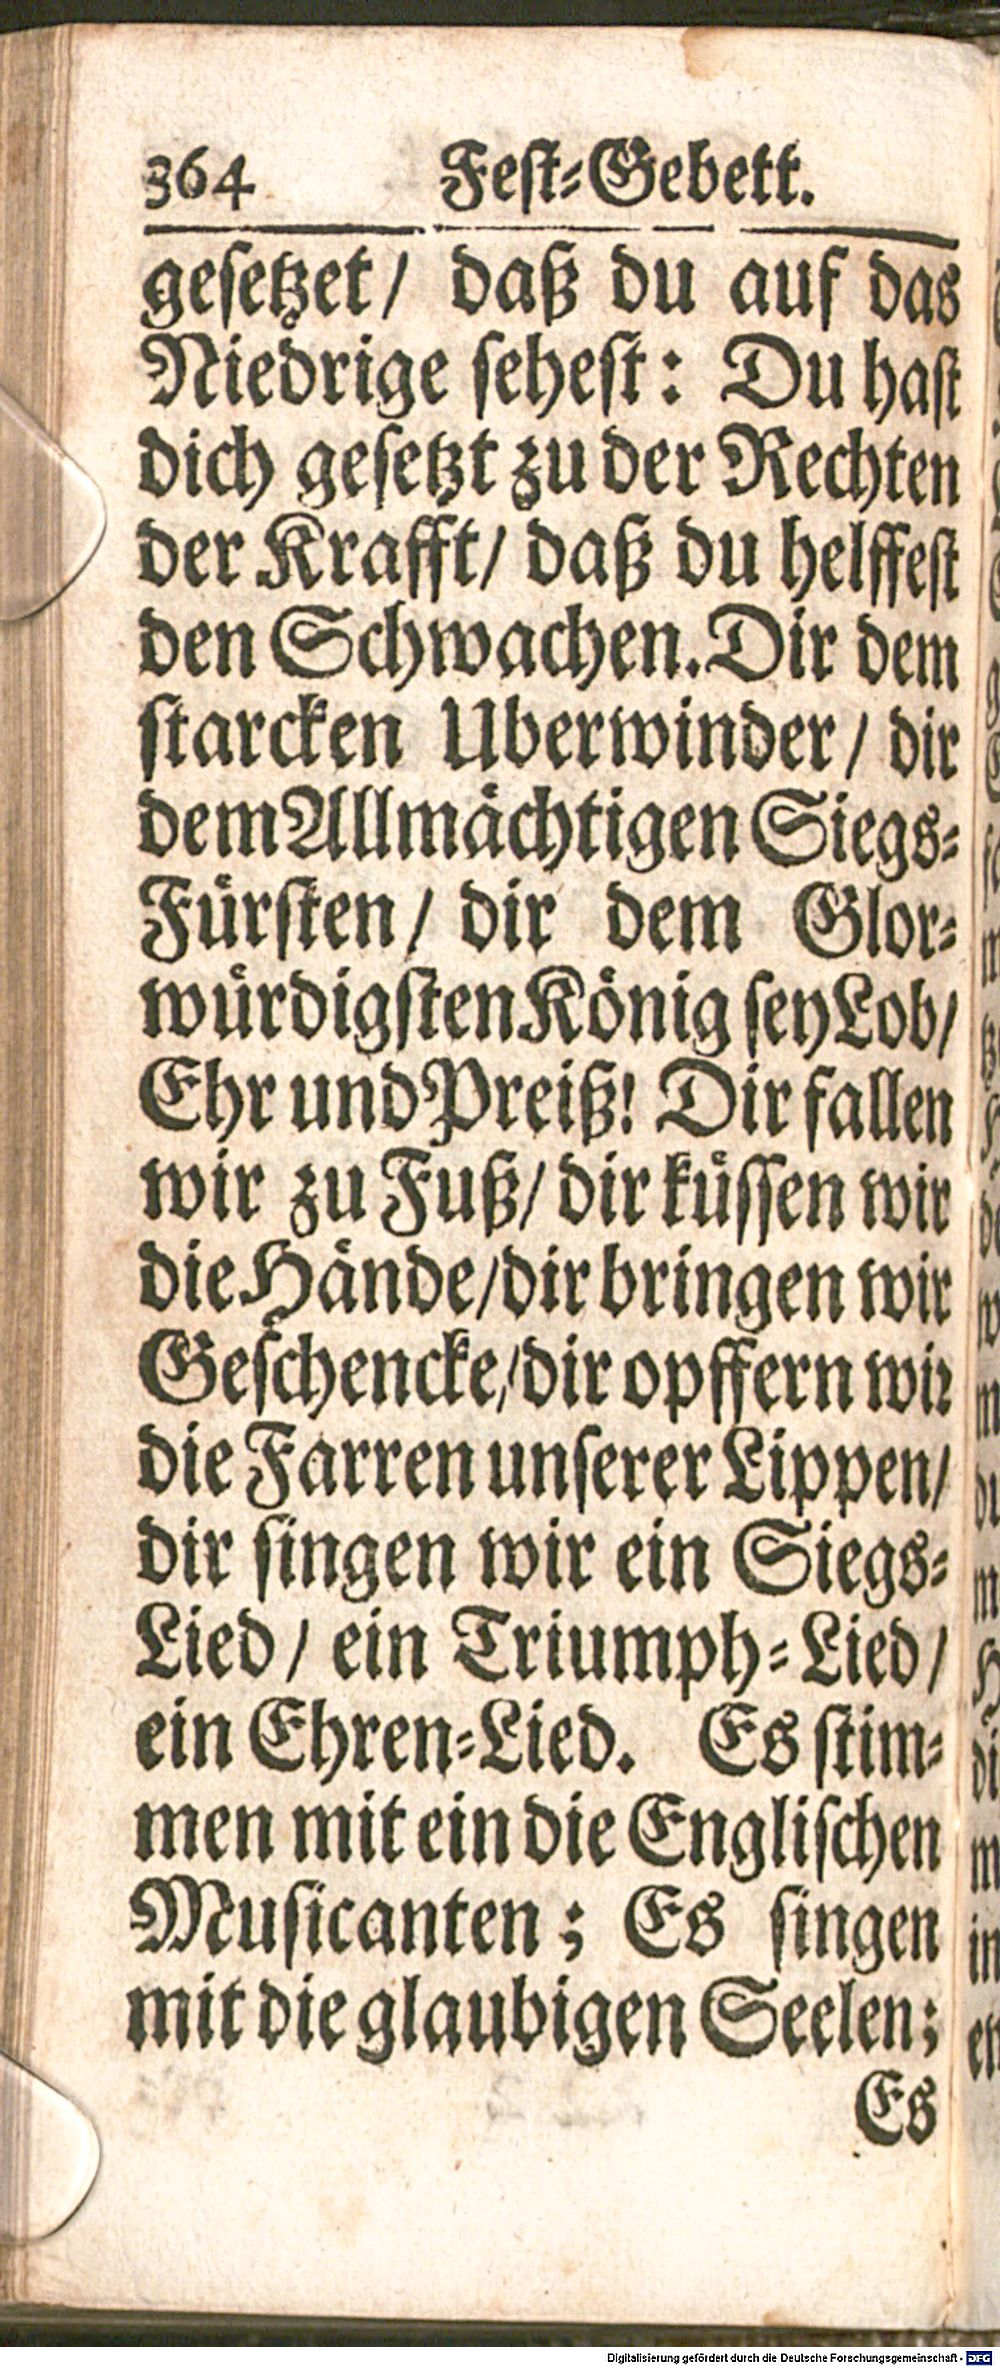 364 Fest-Gebett.
gesetzet/ daß du auf das
Niedrige sehest: Du hast
dich gesetzt zu der Rechten
der Krafft/ daß du helffest
den Schwachen. Dir dem
starcken Uberwinder/ dir
dem Allmächtigen Siegs-
Fürsten/ dir dem Glor-
würdigsten König sey Lob/
Ehr und Preiß! Dir fallen
wir zu Fuß/ dir küssen wir
die Hände/ dir bringen wir
Geschencke/ dir opffern wir
die Farren unserer Lippen/
dir singen wir ein Siegs-
Lied/ ein Triumph-Lied/
ein Ehren-Lied. Es stim-
men mit ein die Englischen
Musicanten; Es singen
mit die glaubigen Seelen;
Es
Digitalisierung gefördert durch die Deutsche Forschungsgemeinschaft - DFG